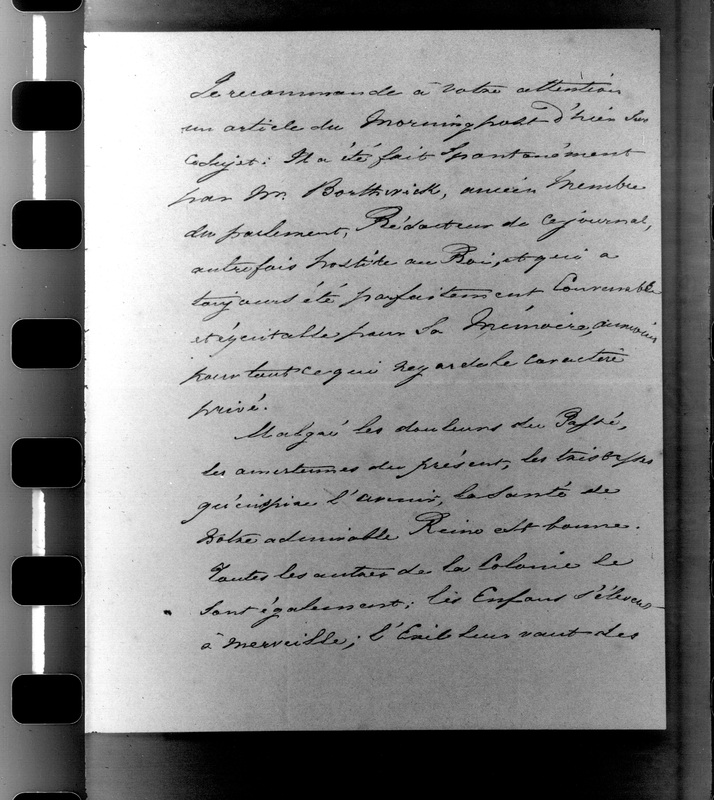 Je recommande à votre attention
un article du Morning post d'hier sur
ce sujet: Il a été fait spontanément
par Mr. Borthwick, ancien Membre
du parlement, Rédacteur de ce journal,
autrefois hostile au Roi, et qui a
toujours été parfaitement Convenable
et équitable pour Sa Mémoire, du moins
pour tout ce qui regarde le caractère
privé.
Malgré les douleurs du Passé,
les amertumes du présent, les tristesses
qu'inspire l'avenir, la Santé de
Votre admirable Reine est bonne.
Toutes les autres de la Colonie le
sont également; les Enfans s'élèvent
à merveille; l'Exil leur vaut des